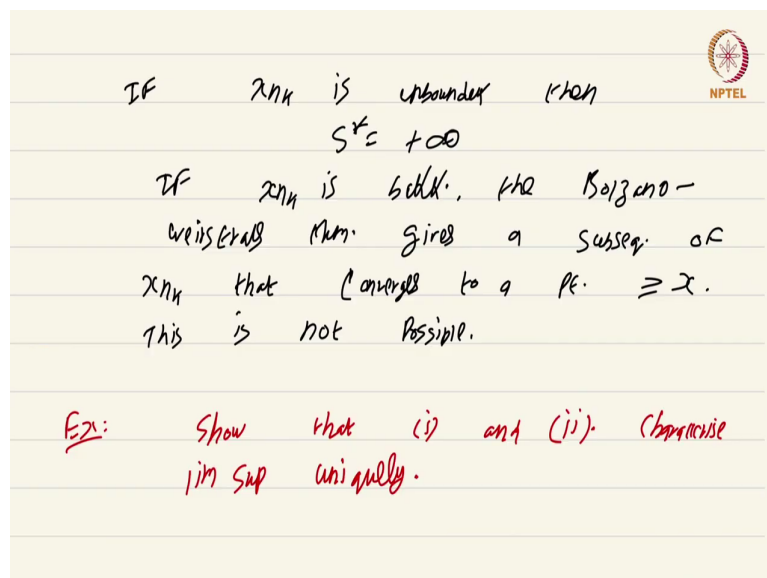 NPTEL
IF xnₖ is unbounded then
S* = +∞
IF xnₖ is bdd., the Bolzano-
Weirstrass thm. gives a subseq. of
xnₖ that converges to a pt. ≥ x.
This is not possible.
Ex: Show that (i) and (ii). Characterise
lim sup uniquely.